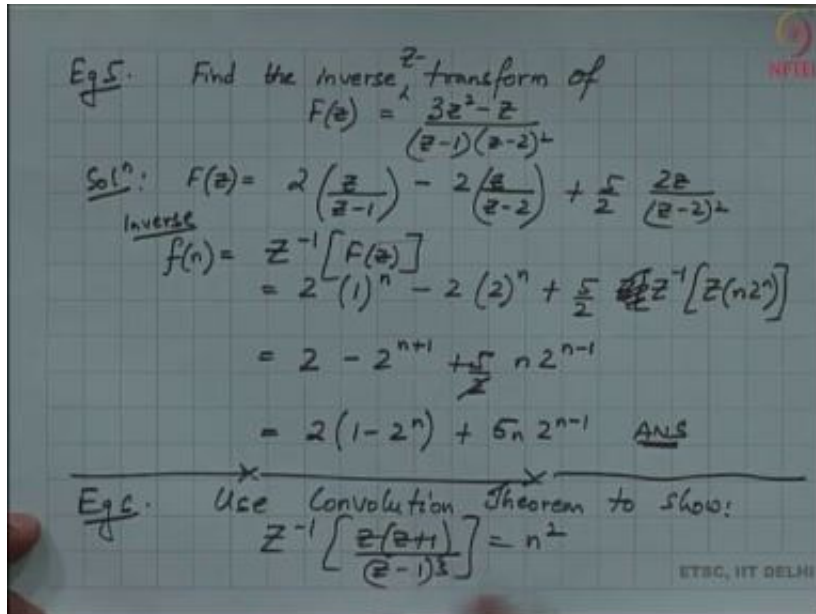 NPTEL
Eg 5. Find the inverse z-transform of
F(z) = (3z² - z)/((z-1)(z-2)²)
Solⁿ: F(z) = 2(z/(z-1)) - 2(z/(z-2)) + 5/2 2z/(z-2)²
Inverse
f(n) = Z⁻¹[F(z)]
= 2 (1)ⁿ - 2 (2)ⁿ + 5/2 Z⁻¹[Z(n2ⁿ)]
= 2 - 2ⁿ⁺¹ + 5/2 n 2ⁿ⁻¹
= 2(1-2ⁿ) + 5n 2ⁿ⁻¹ ANS
Eg 6. Use Convolution Theorem to show:
Z⁻¹[z(z+1)/(z-1)³] = n²
ETSC, IIT DELHI